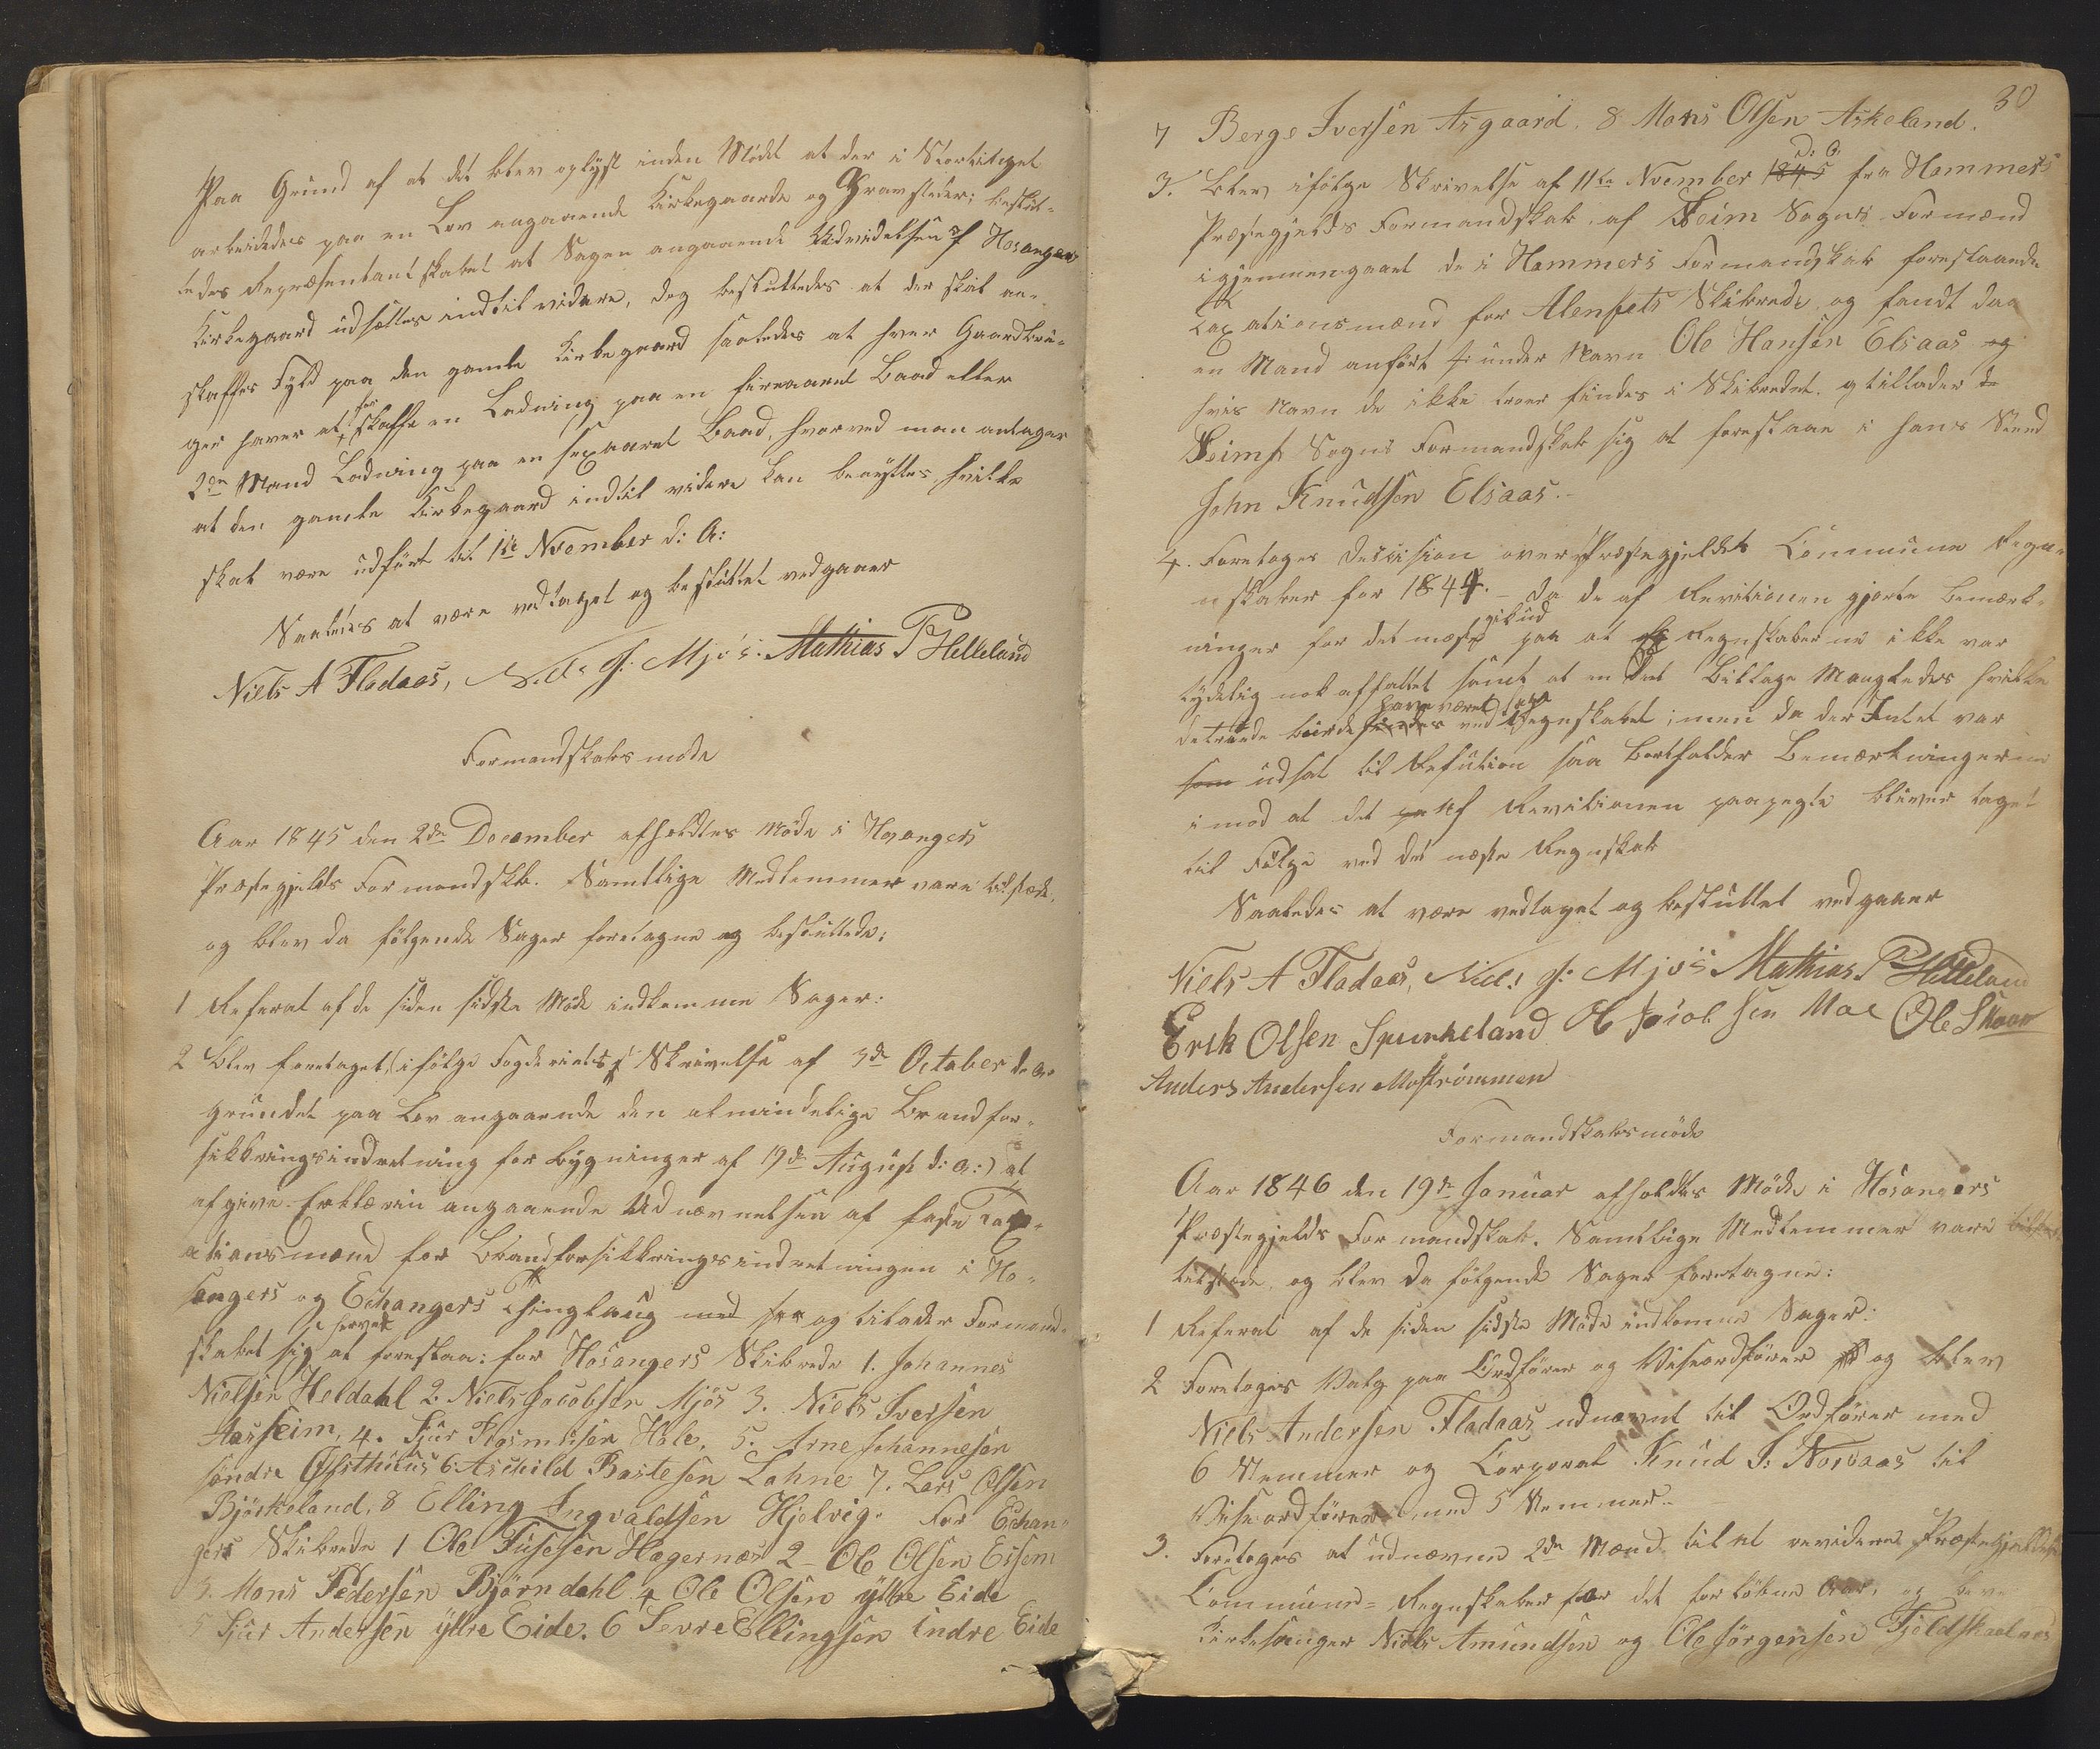 Paa Grund af at det blev oplyst inden Mödet at der i Storthinget
arbeidedes paa en Lov angaaende Kirkegaarde og Gravsteder; beslut-
tedes Repræsentantskabet at Sagen angaaende Udvidelsen af Hosangers
Kirkegaard udsættes indtil videre, dog besluttedes at der skal an-
skaffes Fyld paa den gamle Kirkegaard saaledes at hver Gaardbru-
ger haver at skaffe en Ladning paa en fireaaret Baad eller
2de Mand Ladning paa en sexaaret Baad, hvorved man antager
at den gamle Kirkegaard indtil videre kan benyttes, hvilke
skal være udfört til 1ste November d: A:
Saaledes at være vedtaget og besluttet vedgaaer
Niels A Fladaas, Niels J: Mjös. Mathias P Helleland
Formandskabsmöde
Aar 1845 den 2den December afholdtes Möde i Hosangers
Præstegjelds Formandskb. Samtlige Medlemmer vare tilstæde,
og blev da fölgende Sager foretagne og besluttede:
1 Referat af de siden sidste Möde indkomme Sager:
2 Blev foretaget, (ifölge Fogderiets Skrivelse af 3de October d. A.
grundet paa Lov angaaende den almindelige Brandfor-
sikkringsindretning for Bygninger af 19de August d: A:) at
afgive Erklærin angaaende Udnævnelsen af faste Tax-
ationsmænd for Brandforsikkringsindretningen i Ho-
sangers og Echangers Thinglaug med og tilader Formand-
skabet sig at foreslaa: for Hosangers Skibrede 1. Johannes
Nielsen Heldahl 2. Niels Jacobsen Mjös 3. Niels Iversen
Aasheim, 4. Sjur Rasmusen Hole, 5. Arne Johannesen
söndre Össthuus 6. Aschild Bastesen Lohne 7. Lars Olsen
Björkeland, 8 Elling Ingvaldsen Hjelvig. For Echan-
gers Skibrede 1 Ole Fusesen Hagernæs 2 - Ole Olsen Essem
3. Mons Pedersen Björndahl 4 Ole Olsen yttre Eide
5 Sjur Andersen yttre Eide. 6 Sevre Ellingsen indre Eide
30
7 Berge Iversen Asgaard. 8 Mons Olsen Askeland.
3. Blev ifölge Skrivelse af 11te November 1845 d: A. fra Hammers
Præstegjelds Formandskab af Seim Sogns Formænd
igjennemgaaet de i Hammers Formandskab foreslaaede
Taxationsmænd for Alenfets Skibrede og fandt daa
en Mand anfört 4 under Navn Ole Hansen Elsaas og
hvis Navn de ikke troer findes i Skibredet. og tillader de
Seims Sogns Formandskab sig at foreslaae i hans Sted
John Knudsen Elsaas.
4. Foretoges Decission over Præstegjeldets Commune Regn-
nskaber for 1844. - da de af Revisionen gjorte Bemærk-
ninger for det meste gik ud paa at Regnskaberne ikke var
tydelig nok affattet samt at en Deel Billage Manglede hvilke
de troede burde have været ved Regnskabet; men da der Intet var
som udsat til Refution saa bortfalder Bemærkningerne
imod at det af Revisionen paapegte bliver taget
til Fölge ved det næste Regnskab
Saaledes at være vedtaget og besluttet vedgaaer
Niels A Fladaas, Niels J: Mjös Mathias P Helleland
Erik Olsen Spurkeland Ole Jacobsen Moe Ole Skaar
Anders Andersen Moströmmen
Formandskabsmöde
Aar 1846 den 19de Januar afholdtes Möde i Hosangers
Præstegjelds Formandskab. Samtlige Medlemmer vare
tilstæde og blev da fölgende Sager foretagne:
1 Referat af de siden sidste Möde indkomne Sager:
2 Foretoges Valg paa Ordförer og Viseordförer og blev
Niels Andersen Fladaas udnævnt til Ordförer med
6 Stemmer og Corporal Knud J: Norvaas til
Viseordförer med 5 Stemmer.
3. Foretoges at udnævne 2de Mænd til at revidere Præstegjeldets
Commune- Regnskaber for det forlöbne Aar, og blev
Kirkesanger Niels Amundsen og Ole Jörgensen Fjeldskaalnæs